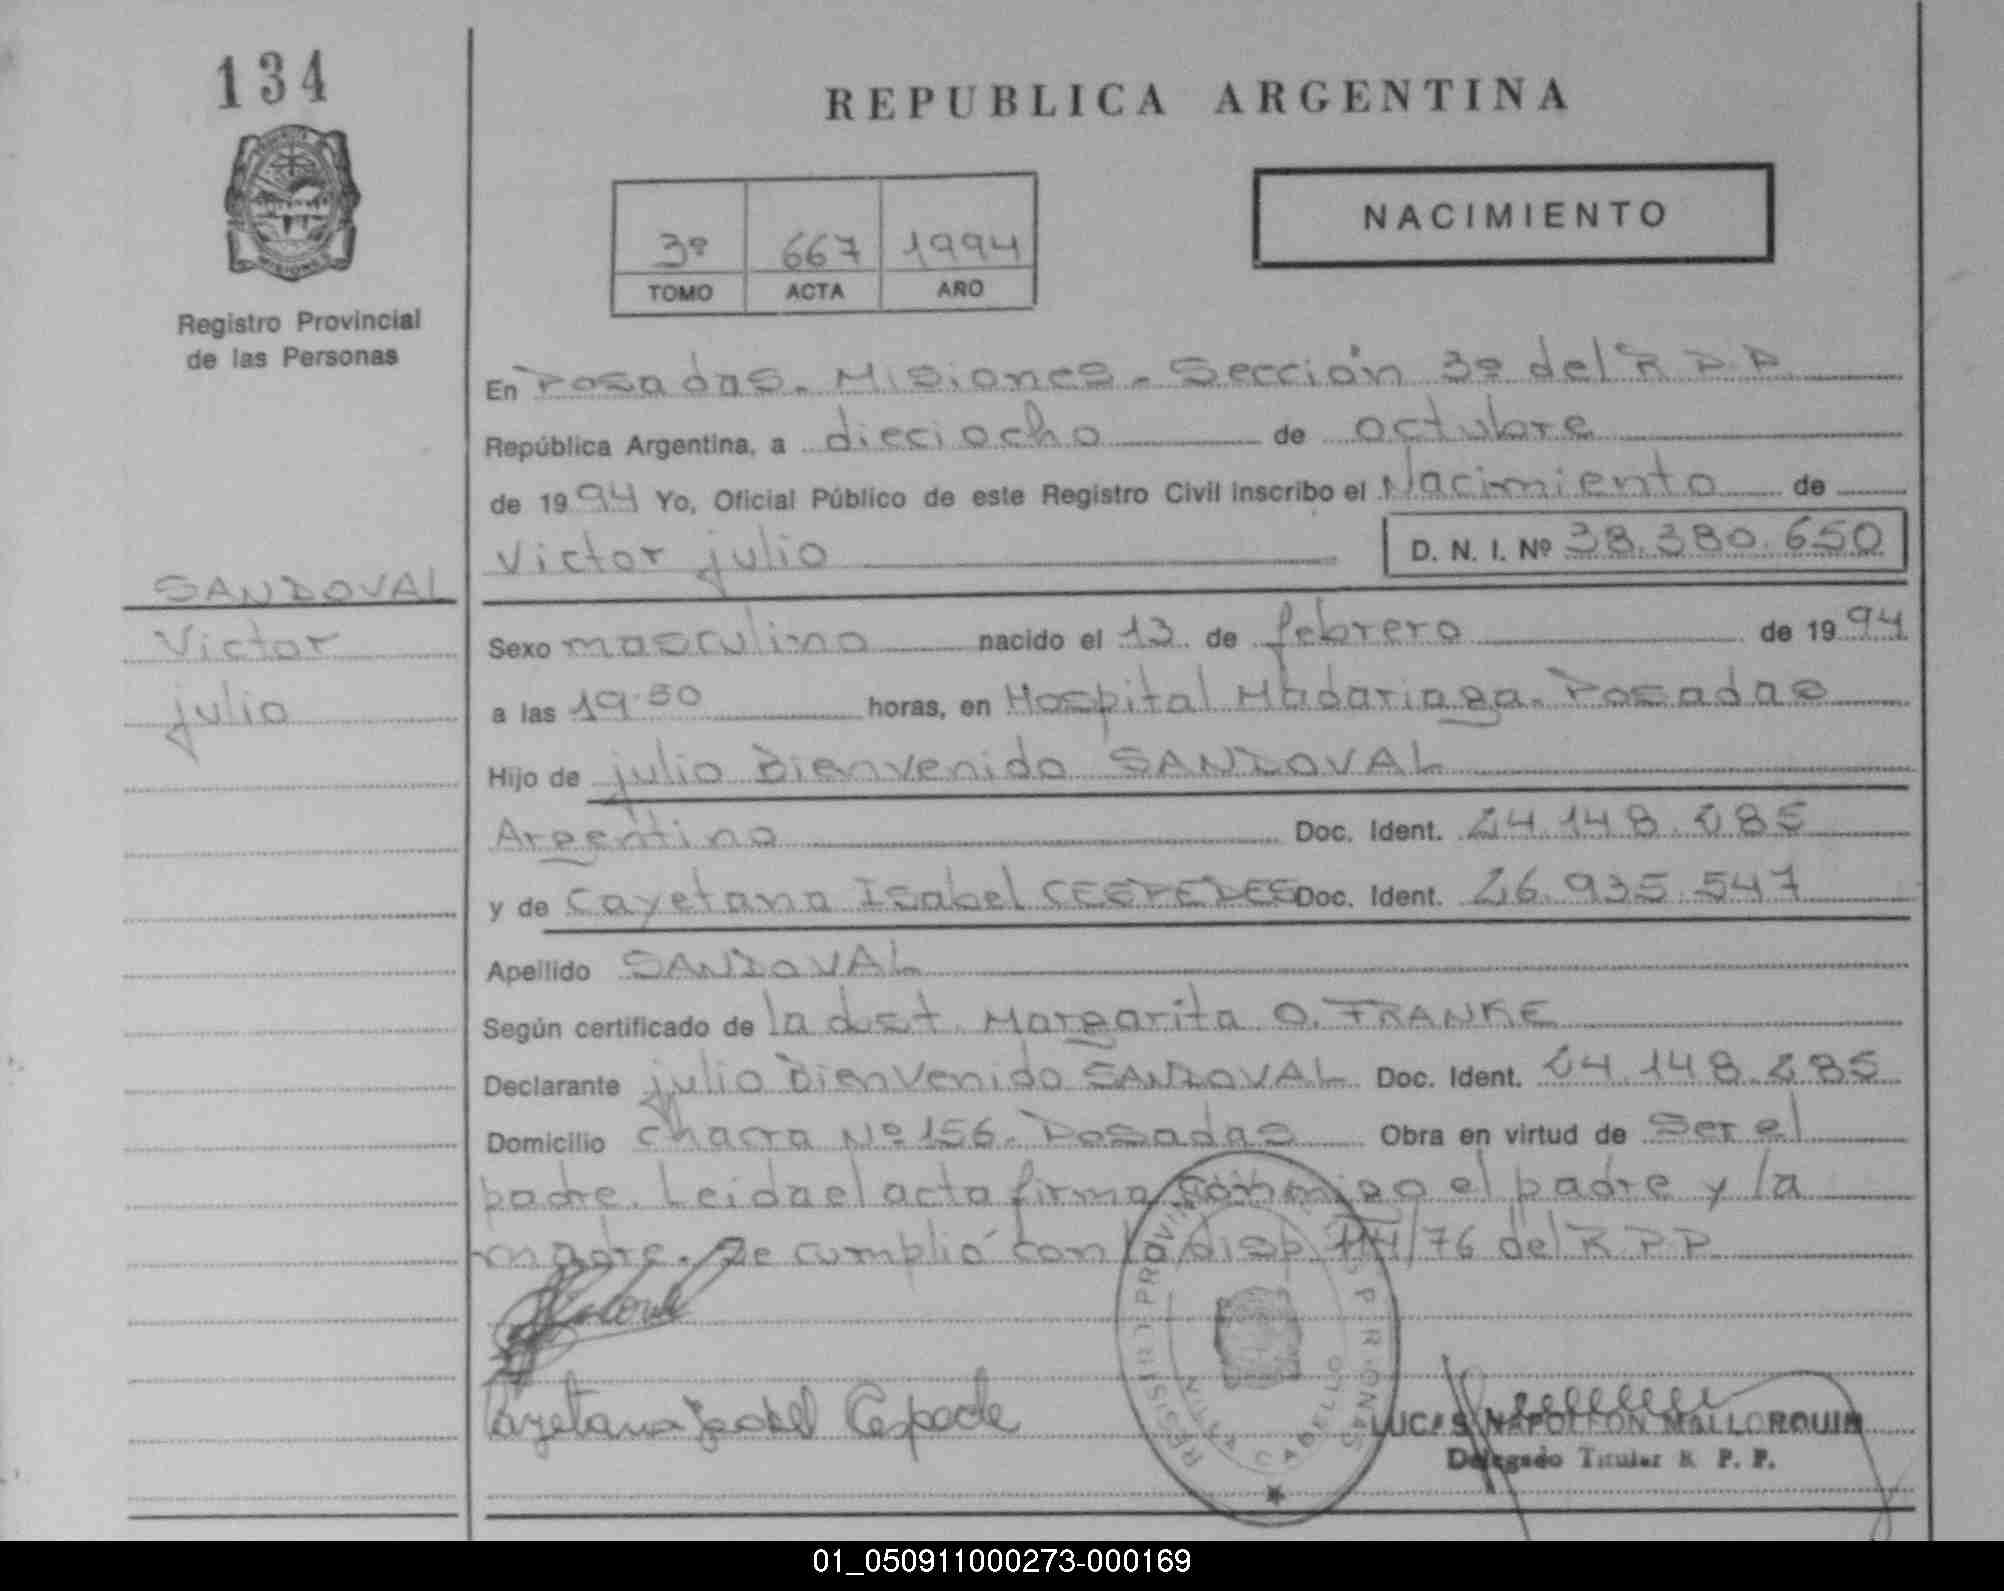 134
REPUBLICA ARGENTINA
MISIONES
Registro Provincial
de las Personas
3º 667 1994
TOMO ACTA AÑO
NACIMIENTO
En Posadas. Misiones. Sección 3º del R.P.P.
República Argentina, a dieciocho de octubre
de 1994 Yo, Oficial Público de este Registro Civil inscribo el Nacimiento de
Victor julio D. N. I. Nº 38.380.650
SANDOVAL
Victor
julio
Sexo masculino nacido el 13 de febrero de 1994
a las 19.50 horas, en Hospital Madariaga. Posadas
Hijo de julio Bienvenido SANDOVAL
Argentino Doc. Ident. 24.148.285
y de Cayetana Isabel CESPEDES Doc. Ident. 26.935.547
Apellido SANDOVAL
Según certificado de la dra. Margarita O. FRANKE
Declarante julio Bienvenido SANDOVAL Doc. Ident. 24.148.285
Domicilio chacra Nº 156. Posadas Obra en virtud de ser el
padre. Leida el acta firma conmigo el padre y la
madre. Se cumplió con la disp. /76 del R.P.P
Cayetana Isabel Cespede
LUCAS NAPOLEON MALLORQUIN
Delegado Titular R. P. P.
01_050911000273-000169